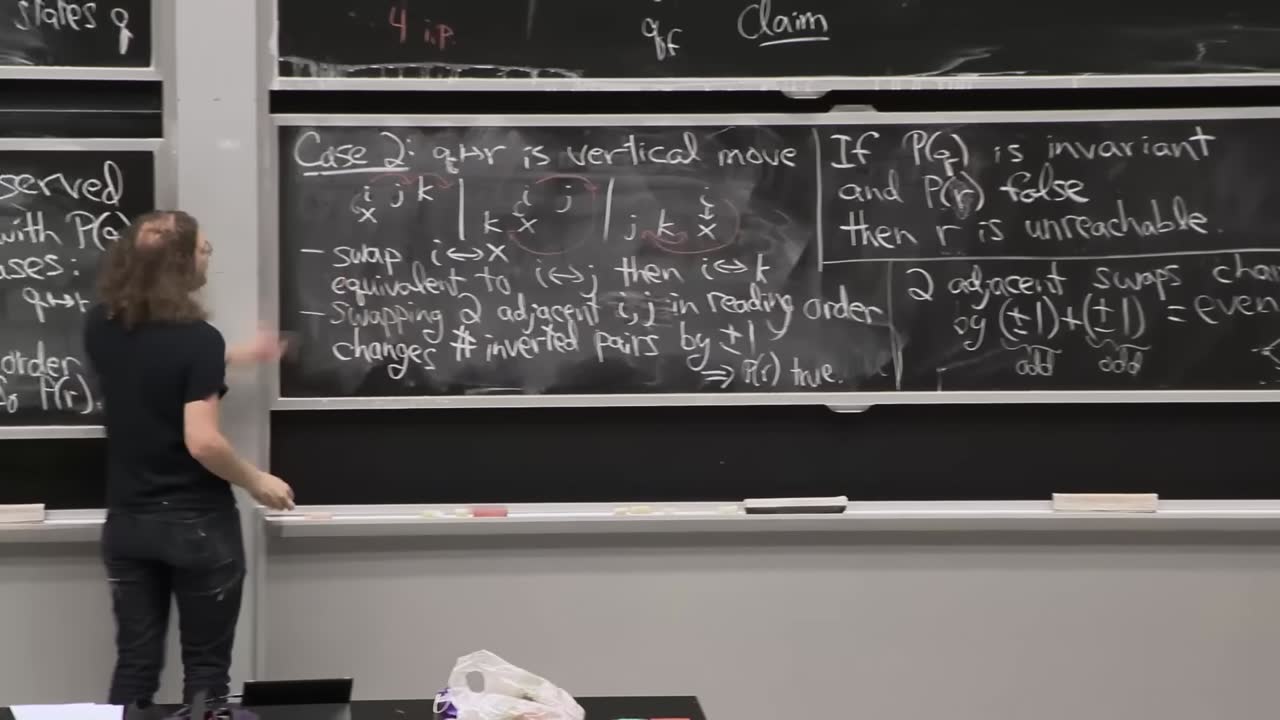 states q
4 i.p.
qf
Claim
served
with P(q)
ases:
q↦r
order
P(r).
Case 2: q↦r is vertical move
i j k | i j | i
x | k x | j k x
- swap i↔x
equivalent to i↔j then i↔k
- Swapping 2 adjacent i,j in reading order
changes # inverted pairs by ±1
⇒ P(r) true.
If P(q) is invariant
and P(r) false
then r is unreachable.
2 adjacent swaps
by (±1)+(±1) = even
odd odd